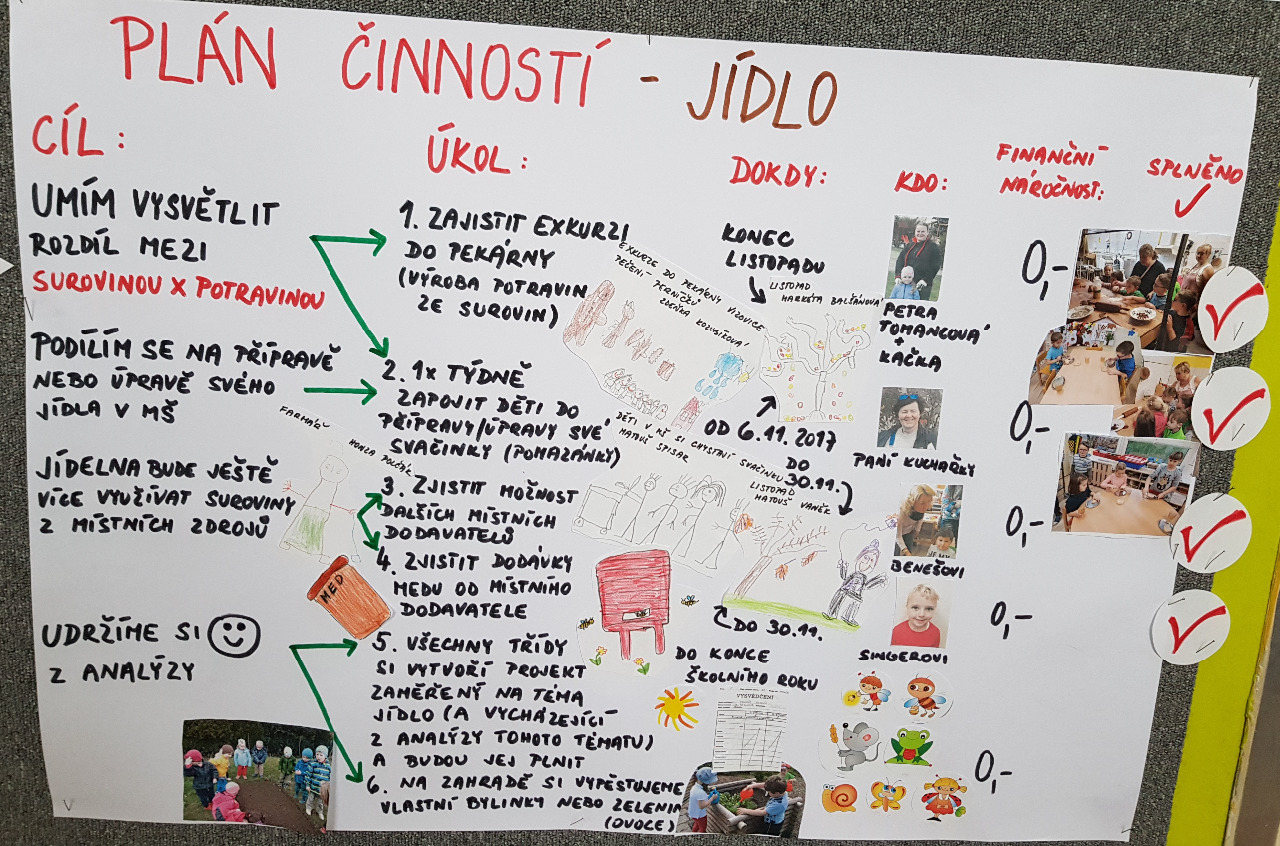 PLÁN ČINNOSTÍ - JÍDLO
CÍL:
UMÍM VYSVĚTLIT
ROZDÍL MEZI
SUROVINOU X POTRAVINOU
PODÍLÍM SE NA PŘÍPRAVĚ
NEBO ÚPRAVĚ SVÉHO
JÍDLA V MŠ
JÍDELNA BUDE JEŠTĚ
VÍCE VYUŽÍVAT SUROVINY
Z MÍSTNÍCH ZDROJŮ
UDRŽÍME SI
Z ANALÝZY
FARMÁŘ
HONZA
MED
ÚKOL:
1. ZAJISTIT EXKURZI
DO PEKÁRNY
(VÝROBA POTRAVIN
ZE SUROVIN)
2. 1x TÝDNĚ
ZAPOJIT DĚTI DO
PŘÍPRAVY/ÚPRAVY SVÉ
SVAČINKY (POMAZÁNKY)
3. ZJISTIT MOŽNOST
DALŠÍCH MÍSTNÍCH
DODAVATELŮ
4. ZJISTIT DODÁVKY
MEDU OD MÍSTNÍHO
DODAVATELE
5. VŠECHNY TŘÍDY
SI VYTVOŘÍ PROJEKT
ZAMĚŘENÝ NA TÉMA
JÍDLO (A VYCHÁZEJÍCÍ
Z ANALÝZY TOHOTO TÉMATU)
A BUDOU JEJ PLNIT
6. NA ZAHRADĚ SI VYPĚSTUJEME
VLASTNÍ BYLINKY NEBO ZELENIN
(OVOCE)
EXKURZE DO PEKÁRNY VIZOVICE
PEČENÍ PERNÍČKŮ
ZDEŇKA KOZUBÍKOVÁ
DĚTI V KŠ SI CHYSTANÍ SVAČINKU
MATOUŠ SPISAR
DOKDY:
KONEC
LISTOPADU
LISTOPAD
MARKÉTA BALŠÁNOVÁ
OD 6.11.2017
DO
30.11.
LISTOPAD
MATOUŠ VANĚK
DO 30.11.
DO KONCE
ŠKOLNÍHO ROKU
VYSVĚDČENÍ
KDO:
PETRA
TOMANCOVÁ
+
KAČKA
PANÍ KUCHAŘKY
BENEŠOVI
SINGEROVI
FINANČNÍ
NÁROČNOST:
0,-
0,-
0,-
0,-
0,-
SPLNĚNO